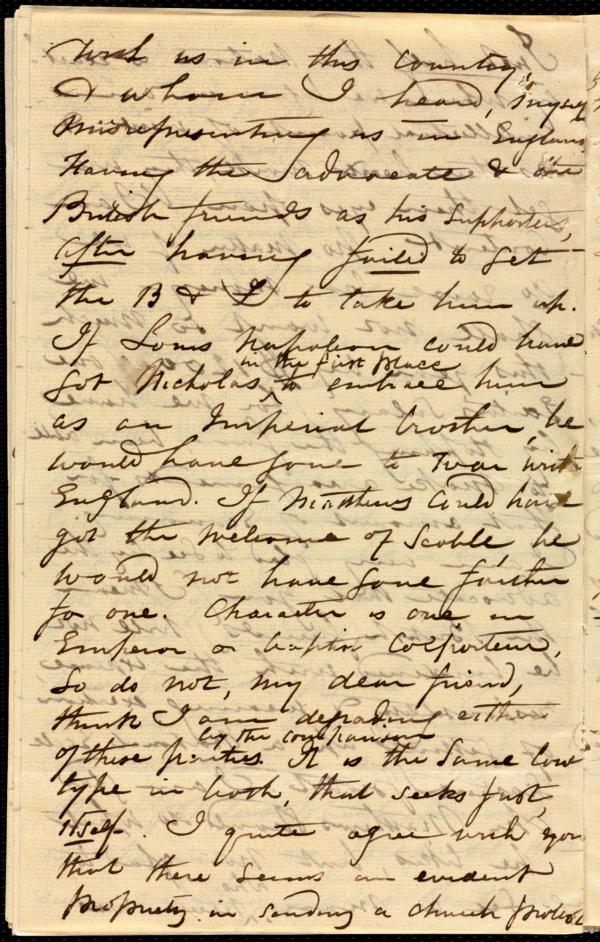 with us in this country,
& whom I heard, myself
misrepresenting us in England
Having the advocate & the
British friends as his supporters,
after having failed to get
the B & F to take him up.
If Louis Napoleon could have
in the first place
got Nicholas, to embrace him
as an Imperial brother, he
would have gone to war with
England. If Matthews could have
got the welcome of Scoble, he
would not have gone further
for one. Character is one in
Emperor or baptist Colporteur,
So do not, my dear friend,
think I am degrading either
by the comparison
of these parties. It is the same low
type in both, that seeks just,
itself. I quite agree with you
that there seems an evident
propriety in sending a church protest